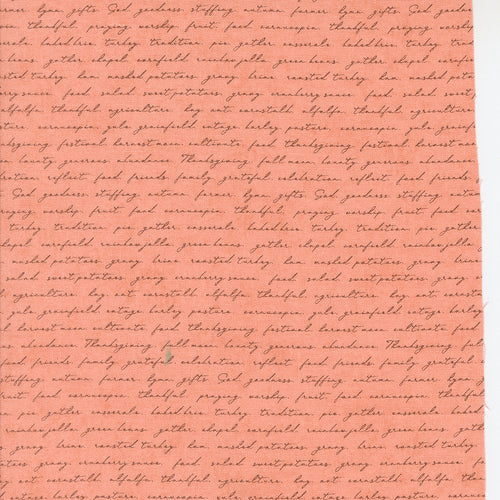 goodness stuffing autumn farmer hymn gifts God goodness stuffing autumn farmer hymn gifts God goodness
thankful praying worship fruit food cornucopia thankful praying worship
casserole baked brie turkey tradition pie gather casserole baked brie turkey tradition
beans gather chapel cornfield rainbow jello green beans gather chapel cornfield
roasted turkey ham mashed potatoes gravy brine roasted turkey ham mashed potatoes
cranberry sauce food salad sweet potatoes gravy cranberry sauce food salad sweet
alfalfa thankful agriculture hay oat cornstalk alfalfa thankful agriculture
pasture cornucopia yale grainfield cottage barley pasture cornucopia yale grainfield
Thanksgiving festival harvest moon cultivate food Thanksgiving festival harvest moon
bounty generous abundance Thanksgiving full moon bounty generous abundance
celebration reflect food friends family grateful celebration reflect food friends
God goodness stuffing autumn farmer hymn gifts God goodness stuffing autumn
praying worship fruit food cornucopia thankful praying worship fruit food
turkey tradition pie gather casserole baked brie turkey tradition pie gather
chapel cornfield rainbow jello green beans gather chapel cornfield rainbow jello
mashed potatoes gravy brine roasted turkey ham mashed potatoes gravy
salad sweet potatoes gravy cranberry sauce food salad sweet potatoes gravy
agriculture hay oat cornstalk alfalfa thankful agriculture hay oat cornstalk
yale grainfield cottage barley pasture cornucopia yale grainfield cottage barley
harvest moon cultivate food Thanksgiving festival harvest moon cultivate food
abundance Thanksgiving full moon bounty generous abundance Thanksgiving full
food friends family grateful celebration reflect food friends family grateful
stuffing autumn farmer hymn gifts God goodness stuffing autumn farmer hymn
fruit food cornucopia thankful praying worship fruit food cornucopia
pie gather casserole baked brie turkey tradition pie gather casserole baked
rainbow jello green beans gather chapel cornfield rainbow jello green beans
gravy brine roasted turkey ham mashed potatoes gravy brine roasted turkey
gravy cranberry sauce food salad sweet potatoes gravy cranberry sauce
oat cornstalk alfalfa thankful agriculture hay oat cornstalk alfalfa
barley pasture cornucopia yale grainfield cottage barley pasture